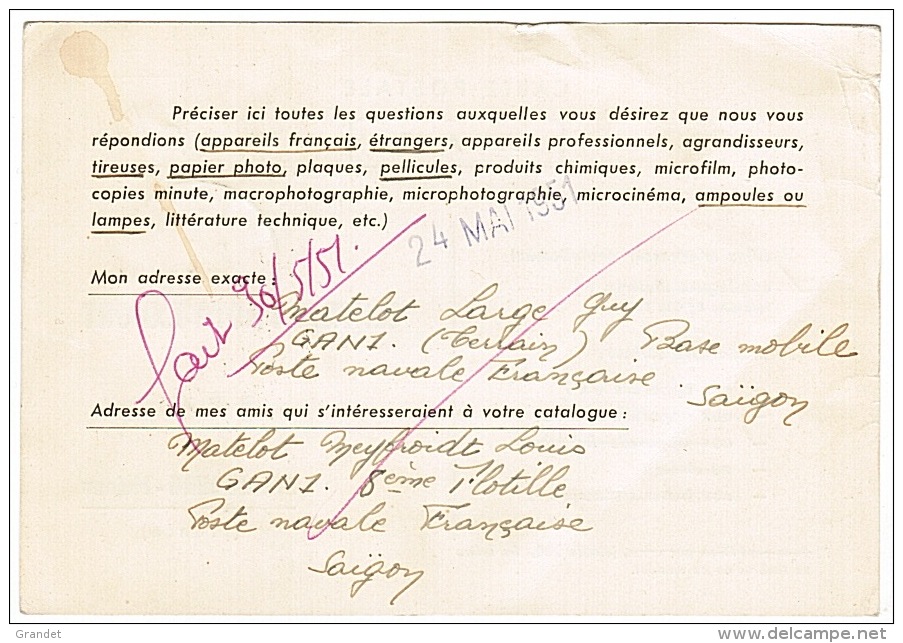 Préciser ici toutes les questions auxquelles vous désirez que nous vous
répondions (appareils français, étrangers, appareils professionnels, agrandisseurs,
tireuses, papier photo, plaques, pellicules, produits chimiques, microfilm, photo-
copies minute, macrophotographie, microphotographie, microcinéma, ampoules ou
lampes, littérature technique, etc.)
24 MAI 1951
Mon adresse exacte :
30/5/51.
Matelot Large Guy
GAN1. (Terrain) Base mobile
Poste navale Française.
Saïgon
Adresse de mes amis qui s'intéresseraient à votre catalogue :
Matelot Meyfroidt Louis
GAN1. 8ème Flotille
Poste navale Française
Saïgon
Grandet
www.delcampe.net